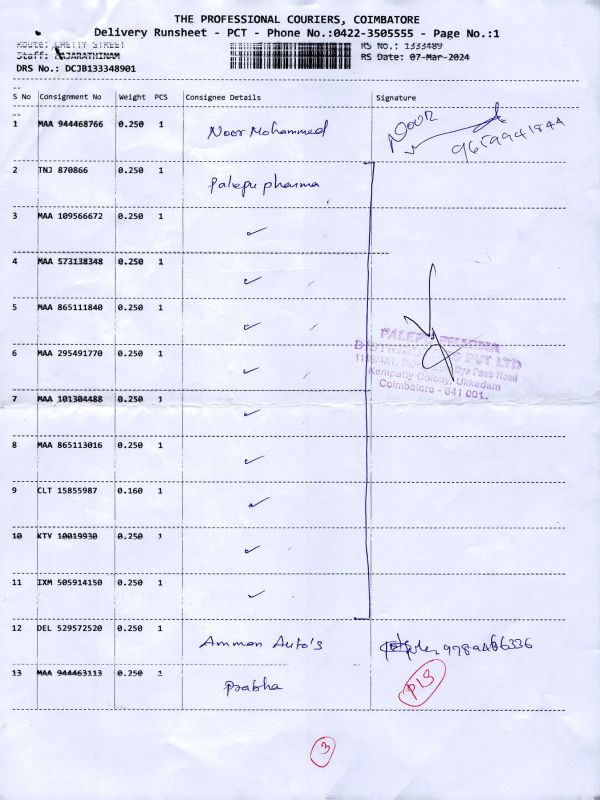 THE PROFESSIONAL COURIERS, COIMBATORE
Delivery Runsheet - PCT - Phone No.:0422-3505555 - Page No.:1
Route: CHETTY STREET
RS No.: 1333489
Staff: RAJARATHINAM
RS Date: 07-Mar-2024
DRS No.: DCJB133348901
S No Consignment No Weight PCS Consignee Details Signature
1 MAA 944468766 0.250 1 Noor Mohammed Noor
9659941844
2 TNJ 870866 0.250 1 Palepu pharma
3 MAA 109566672 0.250 1 ✓
4 MAA 573138348 0.250 1 ✓
5 MAA 865111840 0.250 1 ✓
PALEPU PHARMA
PVT LTD
6 MAA 295491770 0.250 1 ✓
Bye Pass Road
Kempatty Colony, Ukkadam
Coimbatore - 641 001.
7 MAA 101304488 0.250 1 ✓
8 MAA 865113016 0.250 1 ✓
9 CLT 15855987 0.160 1 ✓
10 KTV 10019930 0.250 1 ✓
11 IXM 505914150 0.250 1 ✓
12 DEL 529572520 0.250 1 Amman Auto's
13 MAA 944463113 0.250 1 Prabha
3